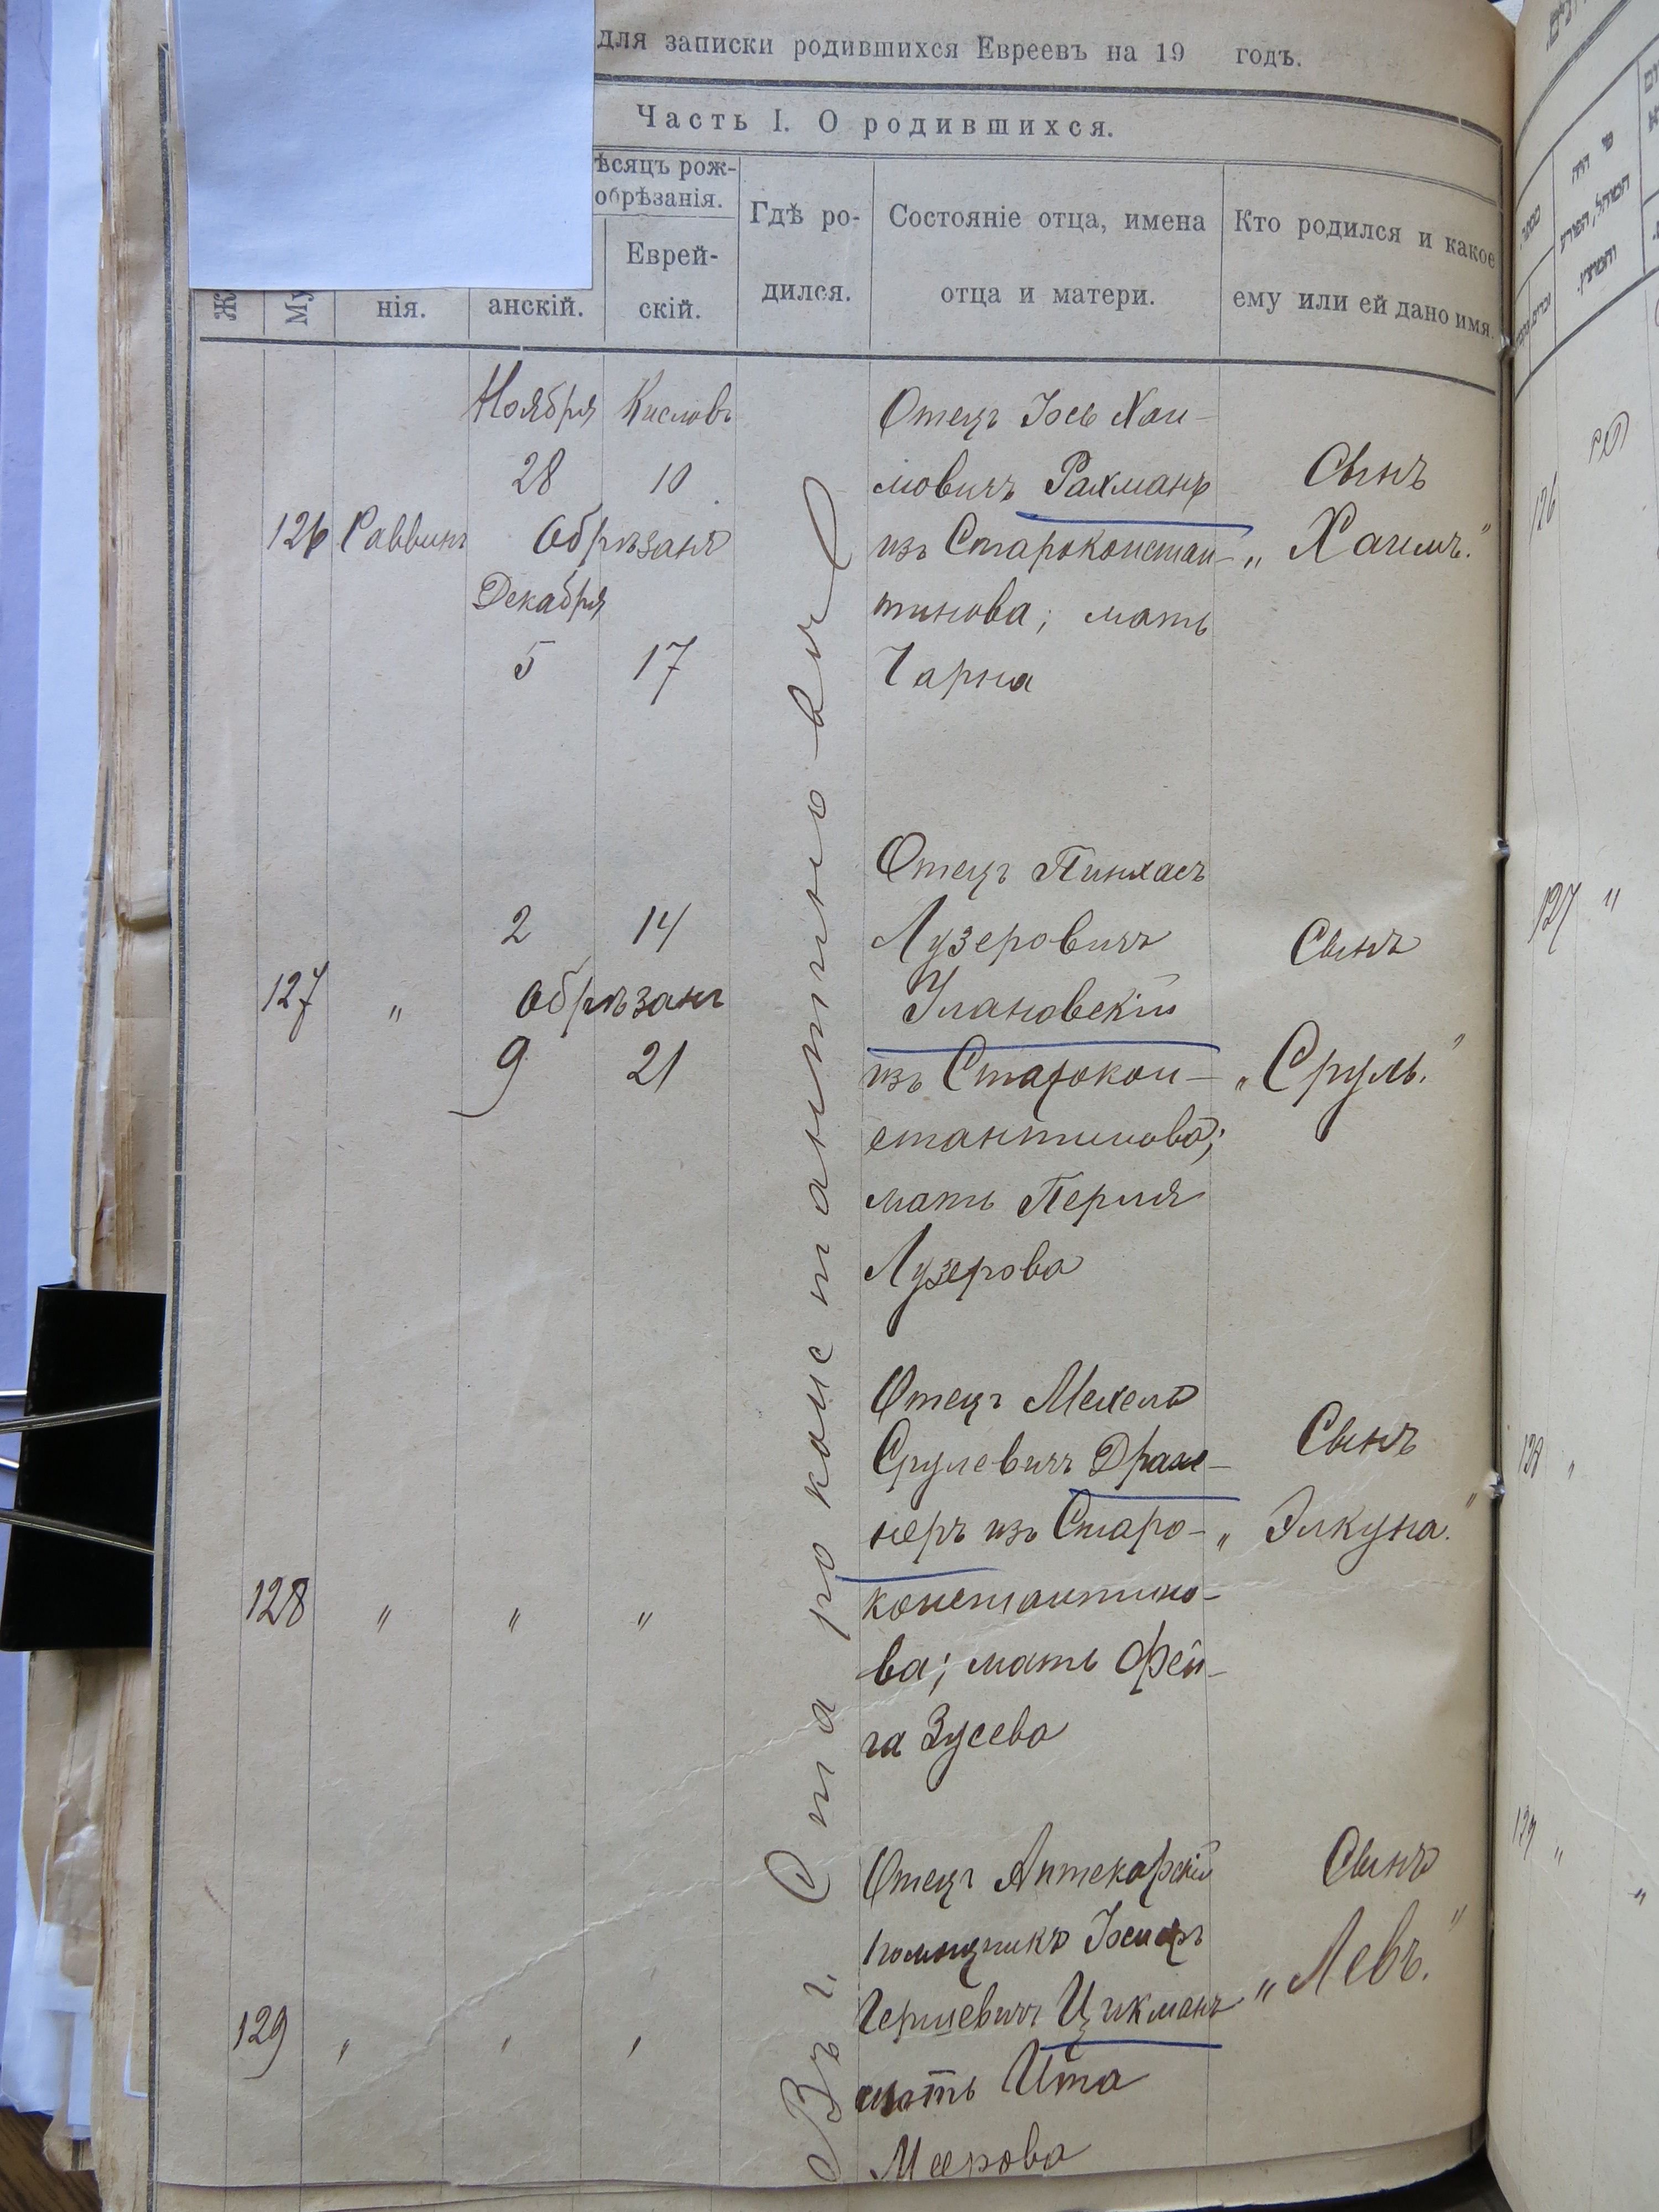 для записки родившихся Евреевъ на 19 годъ.
Часть I. О родившихся.
ѣсяцъ рож-
обрѣзанія.
Ж
Му
нія.
анскій.
Еврей-
скій.
Гдѣ ро-
дился.
Состояніе отца, имена
отца и матери.
Кто родился и какое
ему или ей дано имя.
126
Раввинъ
Ноября Кислевъ
28 10
Обрѣзанъ
Декабря
5 17
Отецъ Іось Хаи-
мовичъ Рахманъ
изъ Староконстан-
тинова; мать
Чарна
Сынъ
„Хаимъ."
127
"
2 14
Обрѣзанъ
9 21
Отецъ Пинхасъ
Лузеровичъ
Улановскій
изъ Старокон-
стантинова;
мать Перля
Лузерова
Сынъ
„Сруль."
128
"
" "
Отецъ Мехелъ
Срулевичъ Драх-
неръ изъ Старо-
константино-
ва; мать Фей-
га Зусева
Сынъ
„Элкуна."
129
Отецъ Аптекарскій
помощникъ
Гершевичъ Цикманъ
мать Ита
Меерова
Сынъ
„Левъ."
Въ г. Староконстантиновѣ
126
127 "
128
129